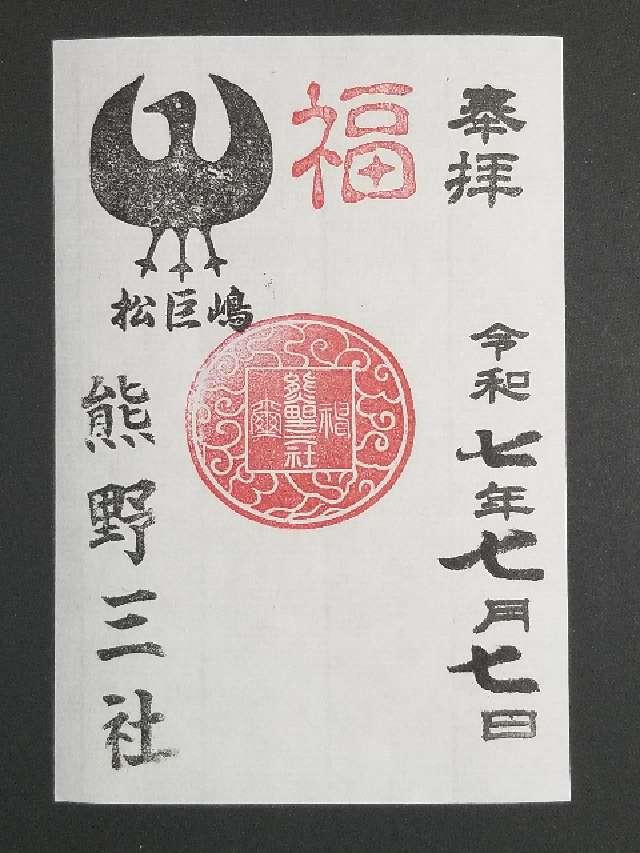 奉拝
令和七年七月七日
福
松巨嶋
熊野三社